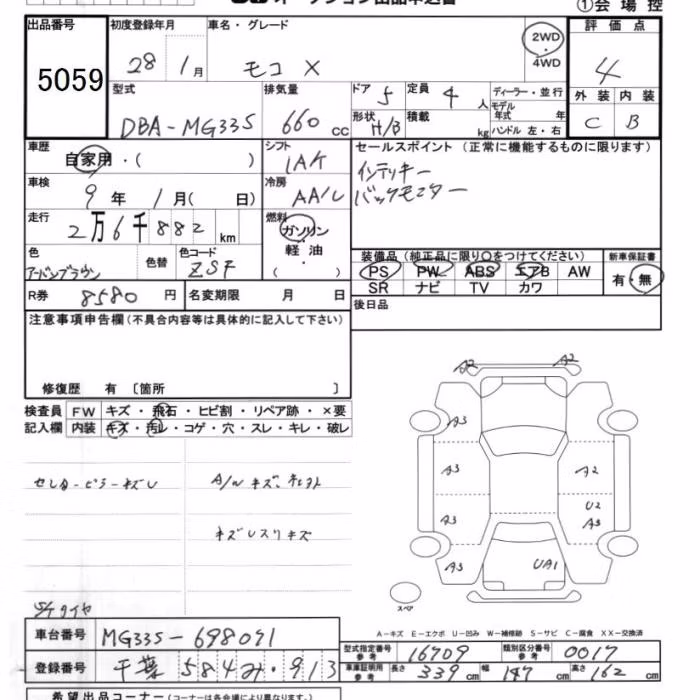 ①会場控
出品番号
5059
初度登録年月
28年1月
車名・グレード
モコ X
2WD
・
4WD
評価点
4
外装 内装
C B
型式
DBA-MG33S
排気量
660 cc
ドア 5
形状 H/B
定員 4 人
積載 kg
ディーラー・並行
モデル年式 年
ハンドル 左・右
車歴
自家用・( )
シフト
IAK
セールスポイント(正常に機能するものに限ります)
インテリキー
バックモニター
車検
9年1月( 日)
冷房
AA/C
走行
2万6千882km
燃料
ガソリン
軽・油
( )
色
アーバンブラウン
色替
色コード
ZSF
装備品(純正品に限り○をつけてください)
PS PW ABS エアB AW
SR ナビ TV カワ
新車保証書
有・無
R券 8580円
名変期限 月 日
後日品
注意事項申告欄(不具合内容等は具体的に記入して下さい)
修復歴 有〔箇所 〕
検査員
記入欄
FW キズ・飛石・ヒビ割・リペア跡・×要
内装 キズ・汚レ・コゲ・穴・スレ・キレ・破レ
A2 A2
A3
A3 A2
U2
A3 A3
A3 UA1
スペア
S/Tタイヤ
A-キズ E-エクボ U-凹み W-補修跡 S-サビ C-腐食 XX-交換済
車台番号 MG33S-698091
登録番号 千葉584み・913
型式指定番号参考 16909
類別区分番号参考 0017
車庫証明用参考
長さ 339cm
幅 147cm
高さ 162cm
希望出品コーナー(コーナーは各会場により異なります。)